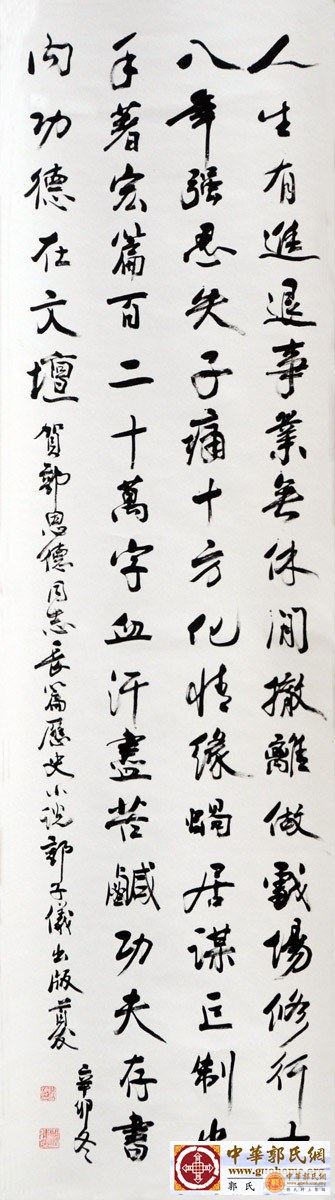 人生有進退事業無休閒撤離做戲場修行十
八年强忍失子痛十方化情緣蝸居謀巨制出
手著宏篇百二十萬字血汗盡苦鹹功夫存書
功德在文壇
賀郭恩德同志長篇歷史小説郭子儀出版首發
辛卯冬
中華郭氏網
郭氏
中華郭氏網